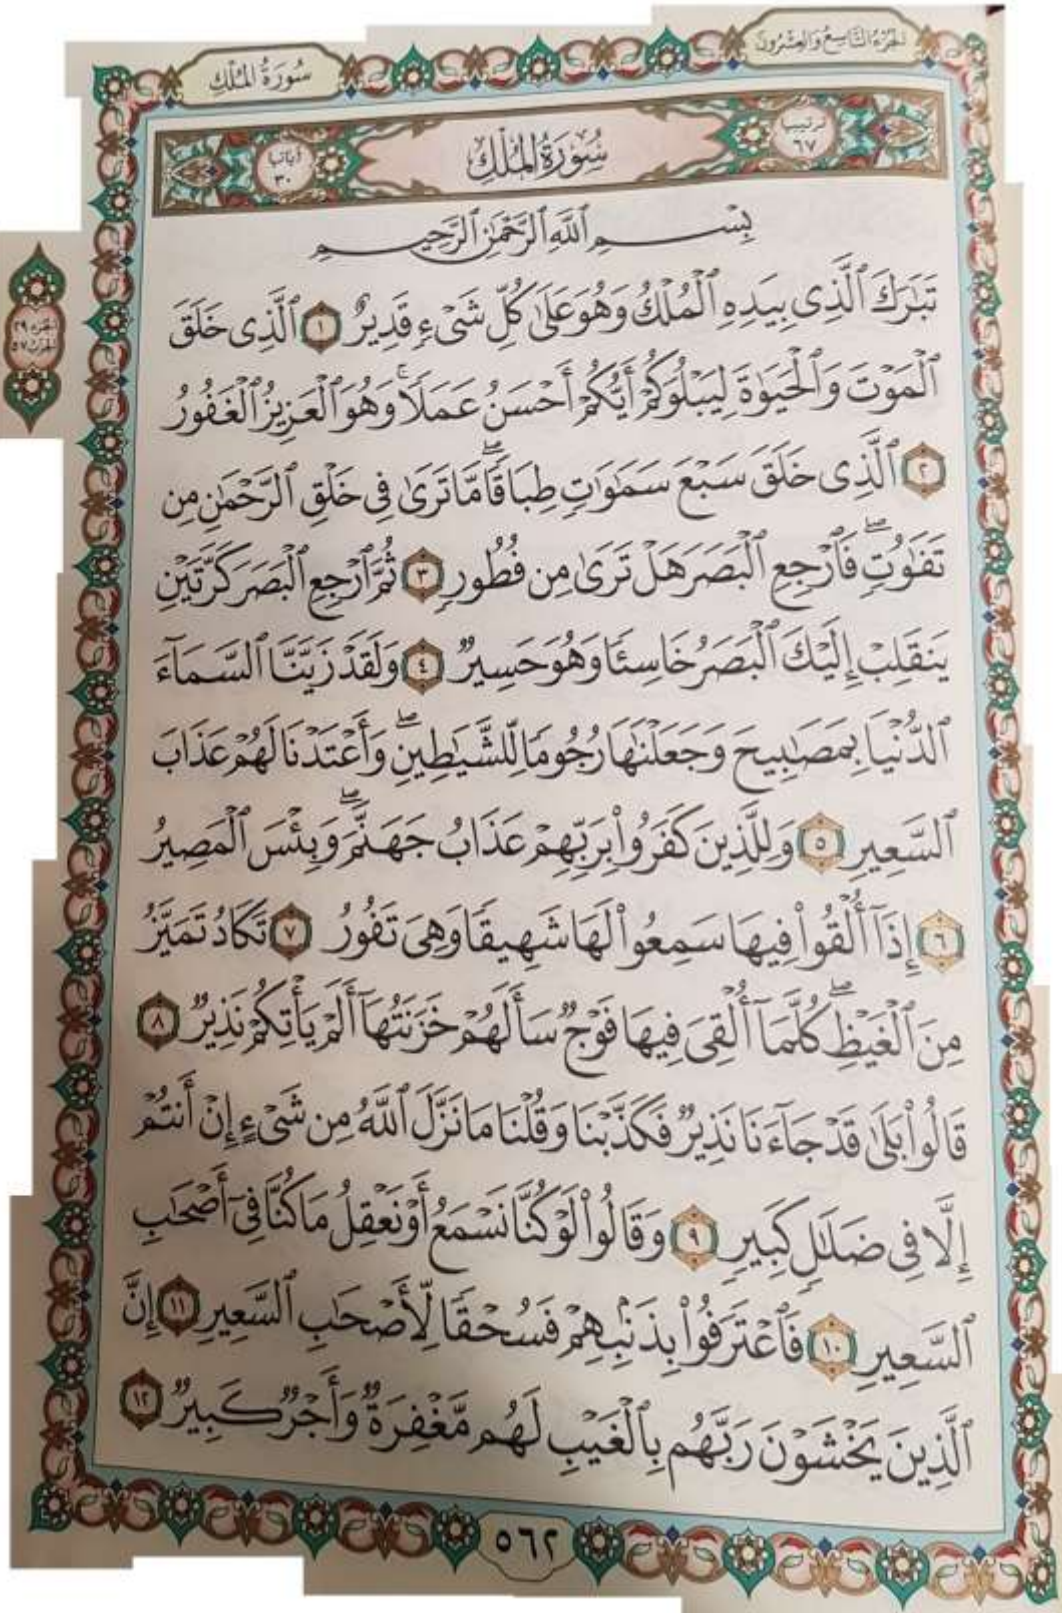 الجزء التاسع والعشرون
سُورَةُ المُلْكِ
ترتيبها
٦٧
سُورَةُ المُلْكِ
آياتها
٣٠
بِسْمِ ٱللَّهِ ٱلرَّحْمَٰنِ ٱلرَّحِيمِ
تَبَٰرَكَ ٱلَّذِى بِيَدِهِ ٱلْمُلْكُ وَهُوَ عَلَىٰ كُلِّ شَىْءٍ قَدِيرٌ ١ ٱلَّذِى خَلَقَ
ٱلْمَوْتَ وَٱلْحَيَوٰةَ لِيَبْلُوَكُمْ أَيُّكُمْ أَحْسَنُ عَمَلًا ۚ وَهُوَ ٱلْعَزِيزُ ٱلْغَفُورُ
٢ ٱلَّذِى خَلَقَ سَبْعَ سَمَٰوَٰتٍ طِبَاقًا ۖ مَّا تَرَىٰ فِى خَلْقِ ٱلرَّحْمَٰنِ مِن
تَفَٰوُتٍ ۖ فَٱرْجِعِ ٱلْبَصَرَ هَلْ تَرَىٰ مِن فُطُورٍ ٣ ثُمَّ ٱرْجِعِ ٱلْبَصَرَ كَرَّتَيْنِ
يَنقَلِبْ إِلَيْكَ ٱلْبَصَرُ خَاسِئًا وَهُوَ حَسِيرٌ ٤ وَلَقَدْ زَيَّنَّا ٱلسَّمَآءَ
ٱلدُّنْيَا بِمَصَٰبِيحَ وَجَعَلْنَٰهَا رُجُومًا لِّلشَّيَٰطِينِ ۖ وَأَعْتَدْنَا لَهُمْ عَذَابَ
ٱلسَّعِيرِ ٥ وَلِلَّذِينَ كَفَرُوا۟ بِرَبِّهِمْ عَذَابُ جَهَنَّمَ ۖ وَبِئْسَ ٱلْمَصِيرُ
٦ إِذَآ أُلْقُوا۟ فِيهَا سَمِعُوا۟ لَهَا شَهِيقًا وَهِىَ تَفُورُ ٧ تَكَادُ تَمَيَّزُ
مِنَ ٱلْغَيْظِ ۖ كُلَّمَآ أُلْقِىَ فِيهَا فَوْجٌ سَأَلَهُمْ خَزَنَتُهَآ أَلَمْ يَأْتِكُمْ نَذِيرٌ ٨
قَالُوا۟ بَلَىٰ قَدْ جَآءَنَا نَذِيرٌ فَكَذَّبْنَا وَقُلْنَا مَا نَزَّلَ ٱللَّهُ مِن شَىْءٍ إِنْ أَنتُمْ
إِلَّا فِى ضَلَٰلٍ كَبِيرٍ ٩ وَقَالُوا۟ لَوْ كُنَّا نَسْمَعُ أَوْ نَعْقِلُ مَا كُنَّا فِىٓ أَصْحَٰبِ
ٱلسَّعِيرِ ١٠ فَٱعْتَرَفُوا۟ بِذَنۢبِهِمْ فَسُحْقًا لِّأَصْحَٰبِ ٱلسَّعِيرِ ١١ إِنَّ
ٱلَّذِينَ يَخْشَوْنَ رَبَّهُم بِٱلْغَيْبِ لَهُم مَّغْفِرَةٌ وَأَجْرٌ كَبِيرٌ ١٢
الجزء ٢٩
الحزب ٥٧
٥٦٢